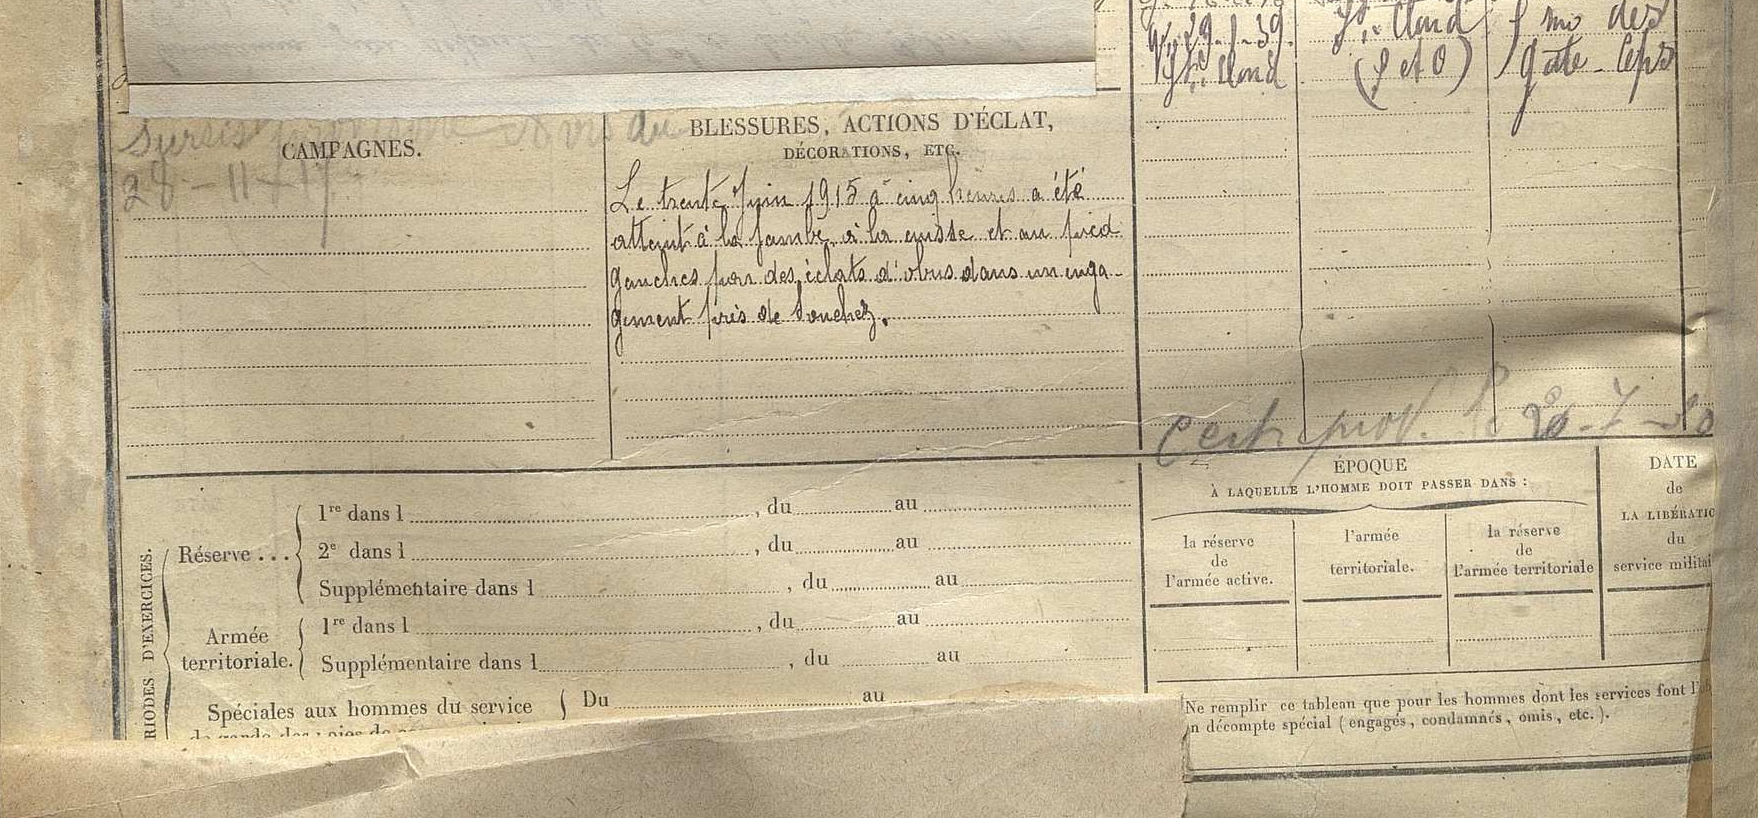 V. 29-1-39.
St. Cloud
St. Cloud
(S et O)
mo des
gate-ceps
Sursis provisoire avis du
28-11-17
CAMPAGNES.
BLESSURES, ACTIONS D'ÉCLAT,
DÉCORATIONS, ETC.
Le trente Juin 1915 à cinq heures a été
atteint à la jambe, à la cuisse et au pied
gauches par des éclats d'obus dans un enga-
gement près de Souchez.
Certe prov. le 20-7-
PÉRIODES D'EXERCICES.
Réserve...
1re dans l , du au
2e dans l , du au
Supplémentaire dans l , du au
Armée
territoriale.
1re dans l , du au
Supplémentaire dans l , du au
Spéciales aux hommes du service
Du au
ÉPOQUE
À LAQUELLE L'HOMME DOIT PASSER DANS :
la réserve
de
l'armée active.
l'armée
territoriale.
la réserve
de
l'armée territoriale
DATE
de
LA LIBÉRATIO
du
service militai
Ne remplir ce tableau que pour les hommes dont les services font l'
n décompte spécial (engagés, condamnés, omis, etc.).